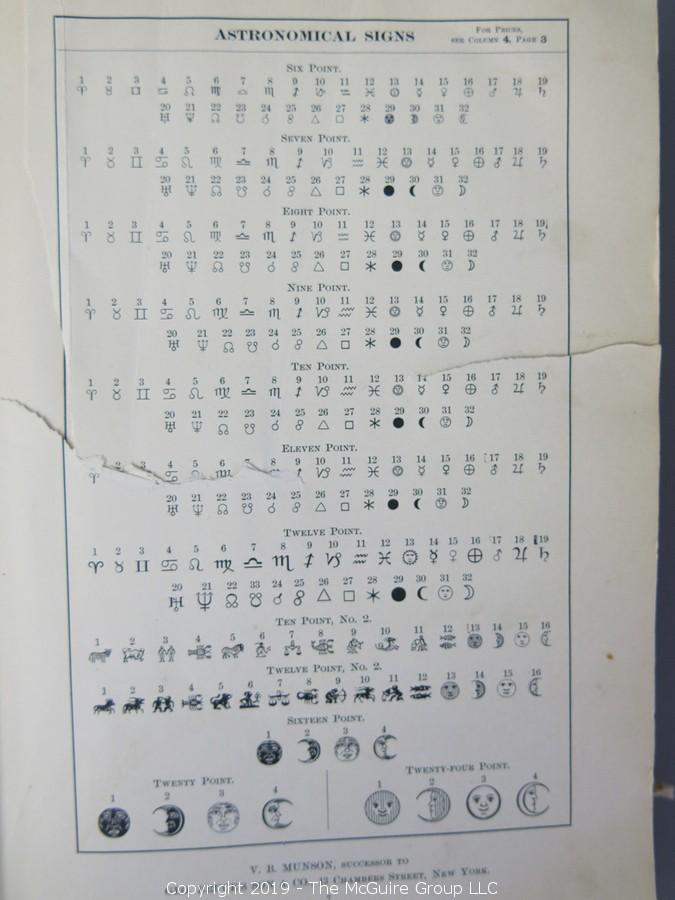 ASTRONOMICAL SIGNS
FOR PRICES,
SEE COLUMN 4, PAGE 3
SIX POINT.
1 2 3 4 5 6 7 8 9 10 11 12 13 14 15 16 17 18 19
♈ ♉ □ ♋ ♌ ♍ ♎ ♏ ♐ ♑ ♒ ♓ ☿ ♀ ⊕ ♂ ♃ ♄
20 21 22 23 24 25 26 27 28 29 30 31 32
♅ ♆ ☊ ☋ ☌ ☍ △ □ ✶
SEVEN POINT.
1 2 3 4 5 6 7 8 9 10 11 12 13 14 15 16 17 18 19
♈ ♉ ♊ ♋ ♌ ♍ ♎ ♏ ♐ ♑ ♒ ♓ ☿ ♀ ⊕ ♂ ♃ ♄
20 21 22 23 24 25 26 27 28 29 30 31 32
♅ ♆ ☊ ☋ ☌ ☍ △ □ ✶ ● ☽
EIGHT POINT.
1 2 3 4 5 6 7 8 9 10 11 12 13 14 15 16 17 18 19
♈ ♉ ♊ ♋ ♌ ♍ ♎ ♏ ♐ ♑ ♒ ♓ ☿ ♀ ⊕ ♂ ♃ ♄
20 21 22 23 24 25 26 27 28 29 30 31 32
♅ ♆ ☊ ☋ ☌ ☍ △ □ ✶ ● ☽
NINE POINT.
1 2 3 4 5 6 7 8 9 10 11 12 13 14 15 16 17 18 19
♈ ♉ ♊ ♋ ♌ ♍ ♎ ♏ ♐ ♑ ♒ ♓ ☿ ♀ ⊕ ♂ ♃ ♄
20 21 22 23 24 25 26 27 28 29 30 31 32
♅ ♆ ☊ ☋ ☌ ☍ △ □ ✶ ● ☽
TEN POINT.
1 2 3 4 5 6 7 8 9 10 11 12 13 14 15 16 17 18 19
♈ ♉ ♊ ♋ ♌ ♍ ♎ ♏ ♐ ♑ ♒ ♓ ☿ ♀ ⊕ ♂ ♃ ♄
20 21 22 23 24 25 26 27 28 29 30 31 32
♅ ♆ ☊ ☋ ☌ ☍ △ □ ✶ ● ☽
ELEVEN POINT.
1 2 3 4 5 6 7 8 9 10 11 12 13 14 15 16 17 18 19
♈ ♉ ♊ ♋ ♌ ♍ ♎ ♏ ♐ ♑ ♒ ♓ ☿ ♀ ⊕ ♂ ♃ ♄
20 21 22 23 24 25 26 27 28 29 30 31 32
♅ ♆ ☊ ☋ ☌ ☍ △ □ ✶ ● ☽
TWELVE POINT.
1 2 3 4 5 6 7 8 9 10 11 12 13 14 15 16 17 18 19
♈ ♉ ♊ ♋ ♌ ♍ ♎ ♏ ♐ ♑ ♒ ♓ ☿ ♀ ⊕ ♂ ♃ ♄
20 21 22 33 24 25 26 27 28 29 30 31 32
♅ ♆ ☊ ☋ ☌ ☍ △ □ ✶ ● ☽
TEN POINT, NO. 2.
1 2 3 4 5 6 7 8 9 10 11 12 13 14 15 16
TWELVE POINT, NO. 2.
1 2 3 4 5 6 7 8 9 10 11 12 13 14 15 16
SIXTEEN POINT.
1 2 3 4
TWENTY POINT.
1 2 3 4
TWENTY-FOUR POINT.
1 2 3 4
V. B. MUNSON, SUCCESSOR TO
CO., 13 CHAMBERS STREET, NEW YORK.
Copyright 2019 - The McGuire Group LLC